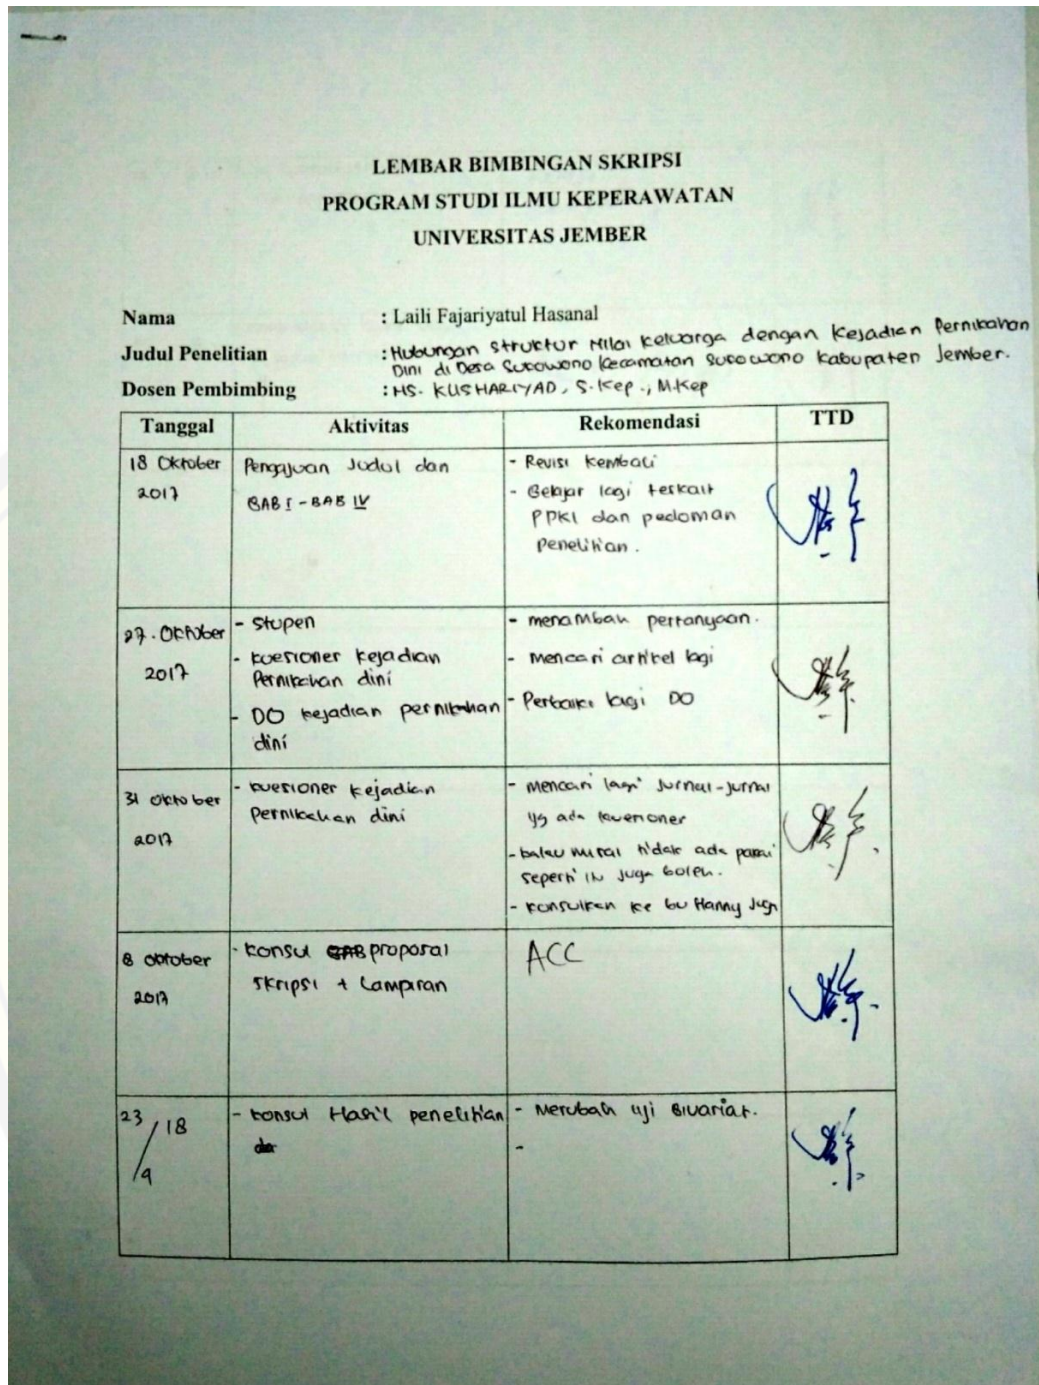 LEMBAR BIMBINGAN SKRIPSI
PROGRAM STUDI ILMU KEPERAWATAN
UNIVERSITAS JEMBER
Nama : Laili Fajariyatul Hasanal
Judul Penelitian : Hubungan Struktur Nilai Keluarga dengan Kejadian Pernikahan
Dini di Desa Sukowono Kecamatan Sukowono Kabupaten Jember.
Dosen Pembimbing : NS. KUSHARIYAD, S.Kep., M.Kep
Tanggal Aktivitas Rekomendasi TTD
18 Oktober
2017
Pengajuan Judul dan
BAB I - BAB IV
- Revisi kembali
- Belajar lagi terkait
PPKI dan pedoman
Penelitian.
27. Oktober
2017
- Stupen
- kuesioner kejadian
Pernikahan dini
- DO kejadian pernikahan
dini
- menambah pertanyaan.
- mencari artikel lagi
- Perbaiki lagi DO
31 Oktober
2017
- kuesioner kejadian
Pernikahan dini
- Mencari lagi Jurnal-jurnal
yg ada kuesioner
- kalau tidak ada
seperti ini juga boleh.
- konsulkan ke bu Hanny
8 oktober
2017
- konsul proposal
skripsi + Lampiran
ACC
23/9 18
- konsul Hasil penelitian
- Merubah uji Bivariat.
-